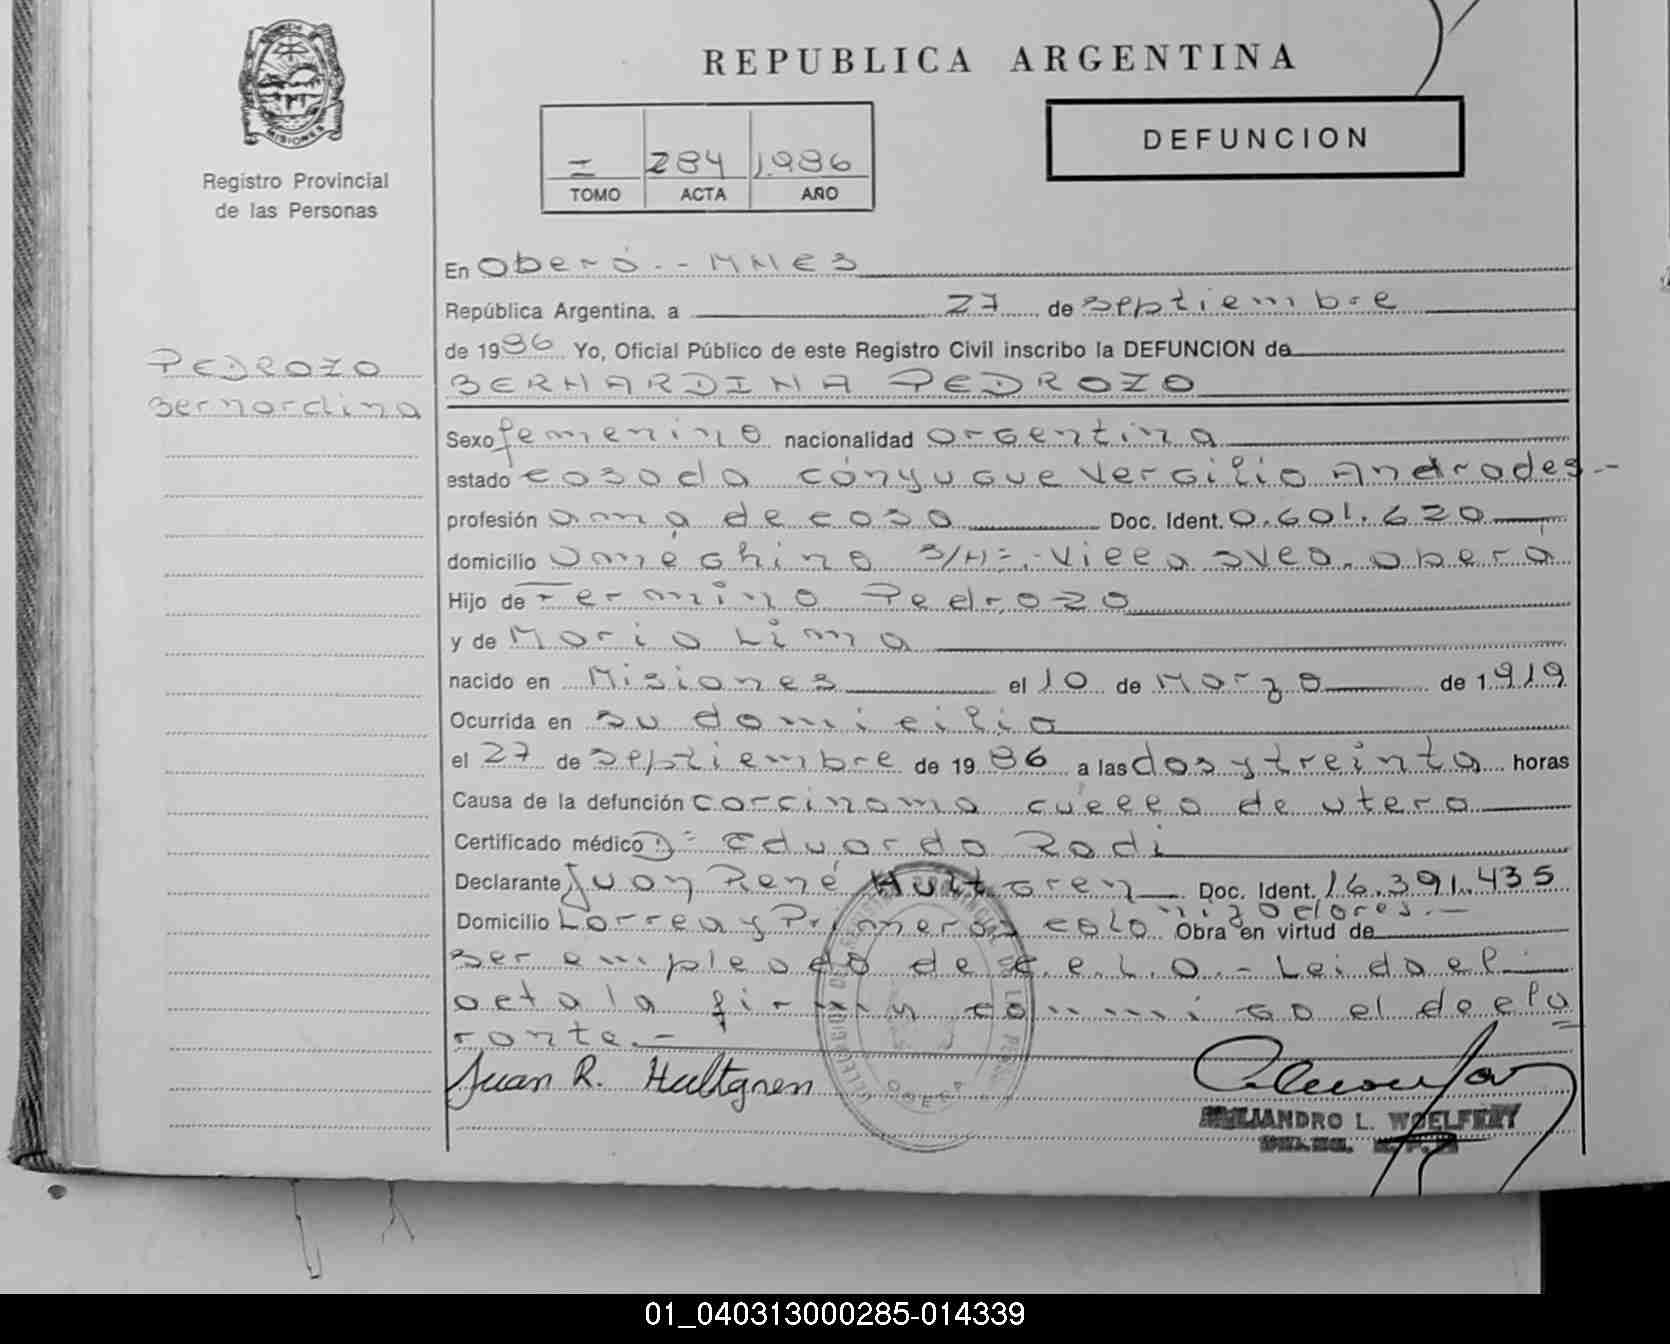 REPUBLICA ARGENTINA
DEFUNCION
MISIONES
Registro Provincial
de las Personas
I 284 1.986
TOMO ACTA AÑO
En Oberá.- MNES
República Argentina, a 27 de septiembre
de 1986 Yo, Oficial Público de este Registro Civil inscribo la DEFUNCION de
BERNARDINA PEDROZO
PEDROZO
Bernardina
Sexo femenino nacionalidad argentina
estado casada cónyugue Vergilio Andrades.-
profesión ama de casa Doc. Ident. 0.601.620
domicilio s/Nº. Villa Svea. Oberá
Hijo de Fermino Pedrozo
y de Maria Lima
nacido en Misiones el 10 de Marzo de 1.919
Ocurrida en su domicilio
el 27 de septiembre de 1986 a las dos y treinta horas
Causa de la defunción carcinoma cuello de utero
Certificado médico Dº Eduardo Rodi
Declarante Juan René Hultgren Doc. Ident. 16.391.435
Domicilio Larrea y Primeros colonizadores.-
Obra en virtud de
ser empleado de C.E.L.O.- Leida el
acta la firma conmigo el decla
rante.-
Juan R. Hultgren
ALEJANDRO L.
01_040313000285-014339